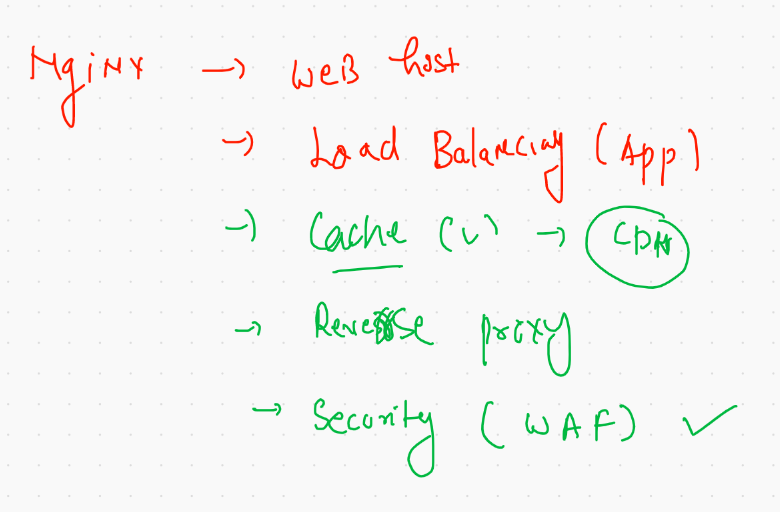 Nginx → WeB host
→ Load Balancing (App)
→ Cache (v) → CDN
→ Reverse proxy
→ Security (WAF) ✓